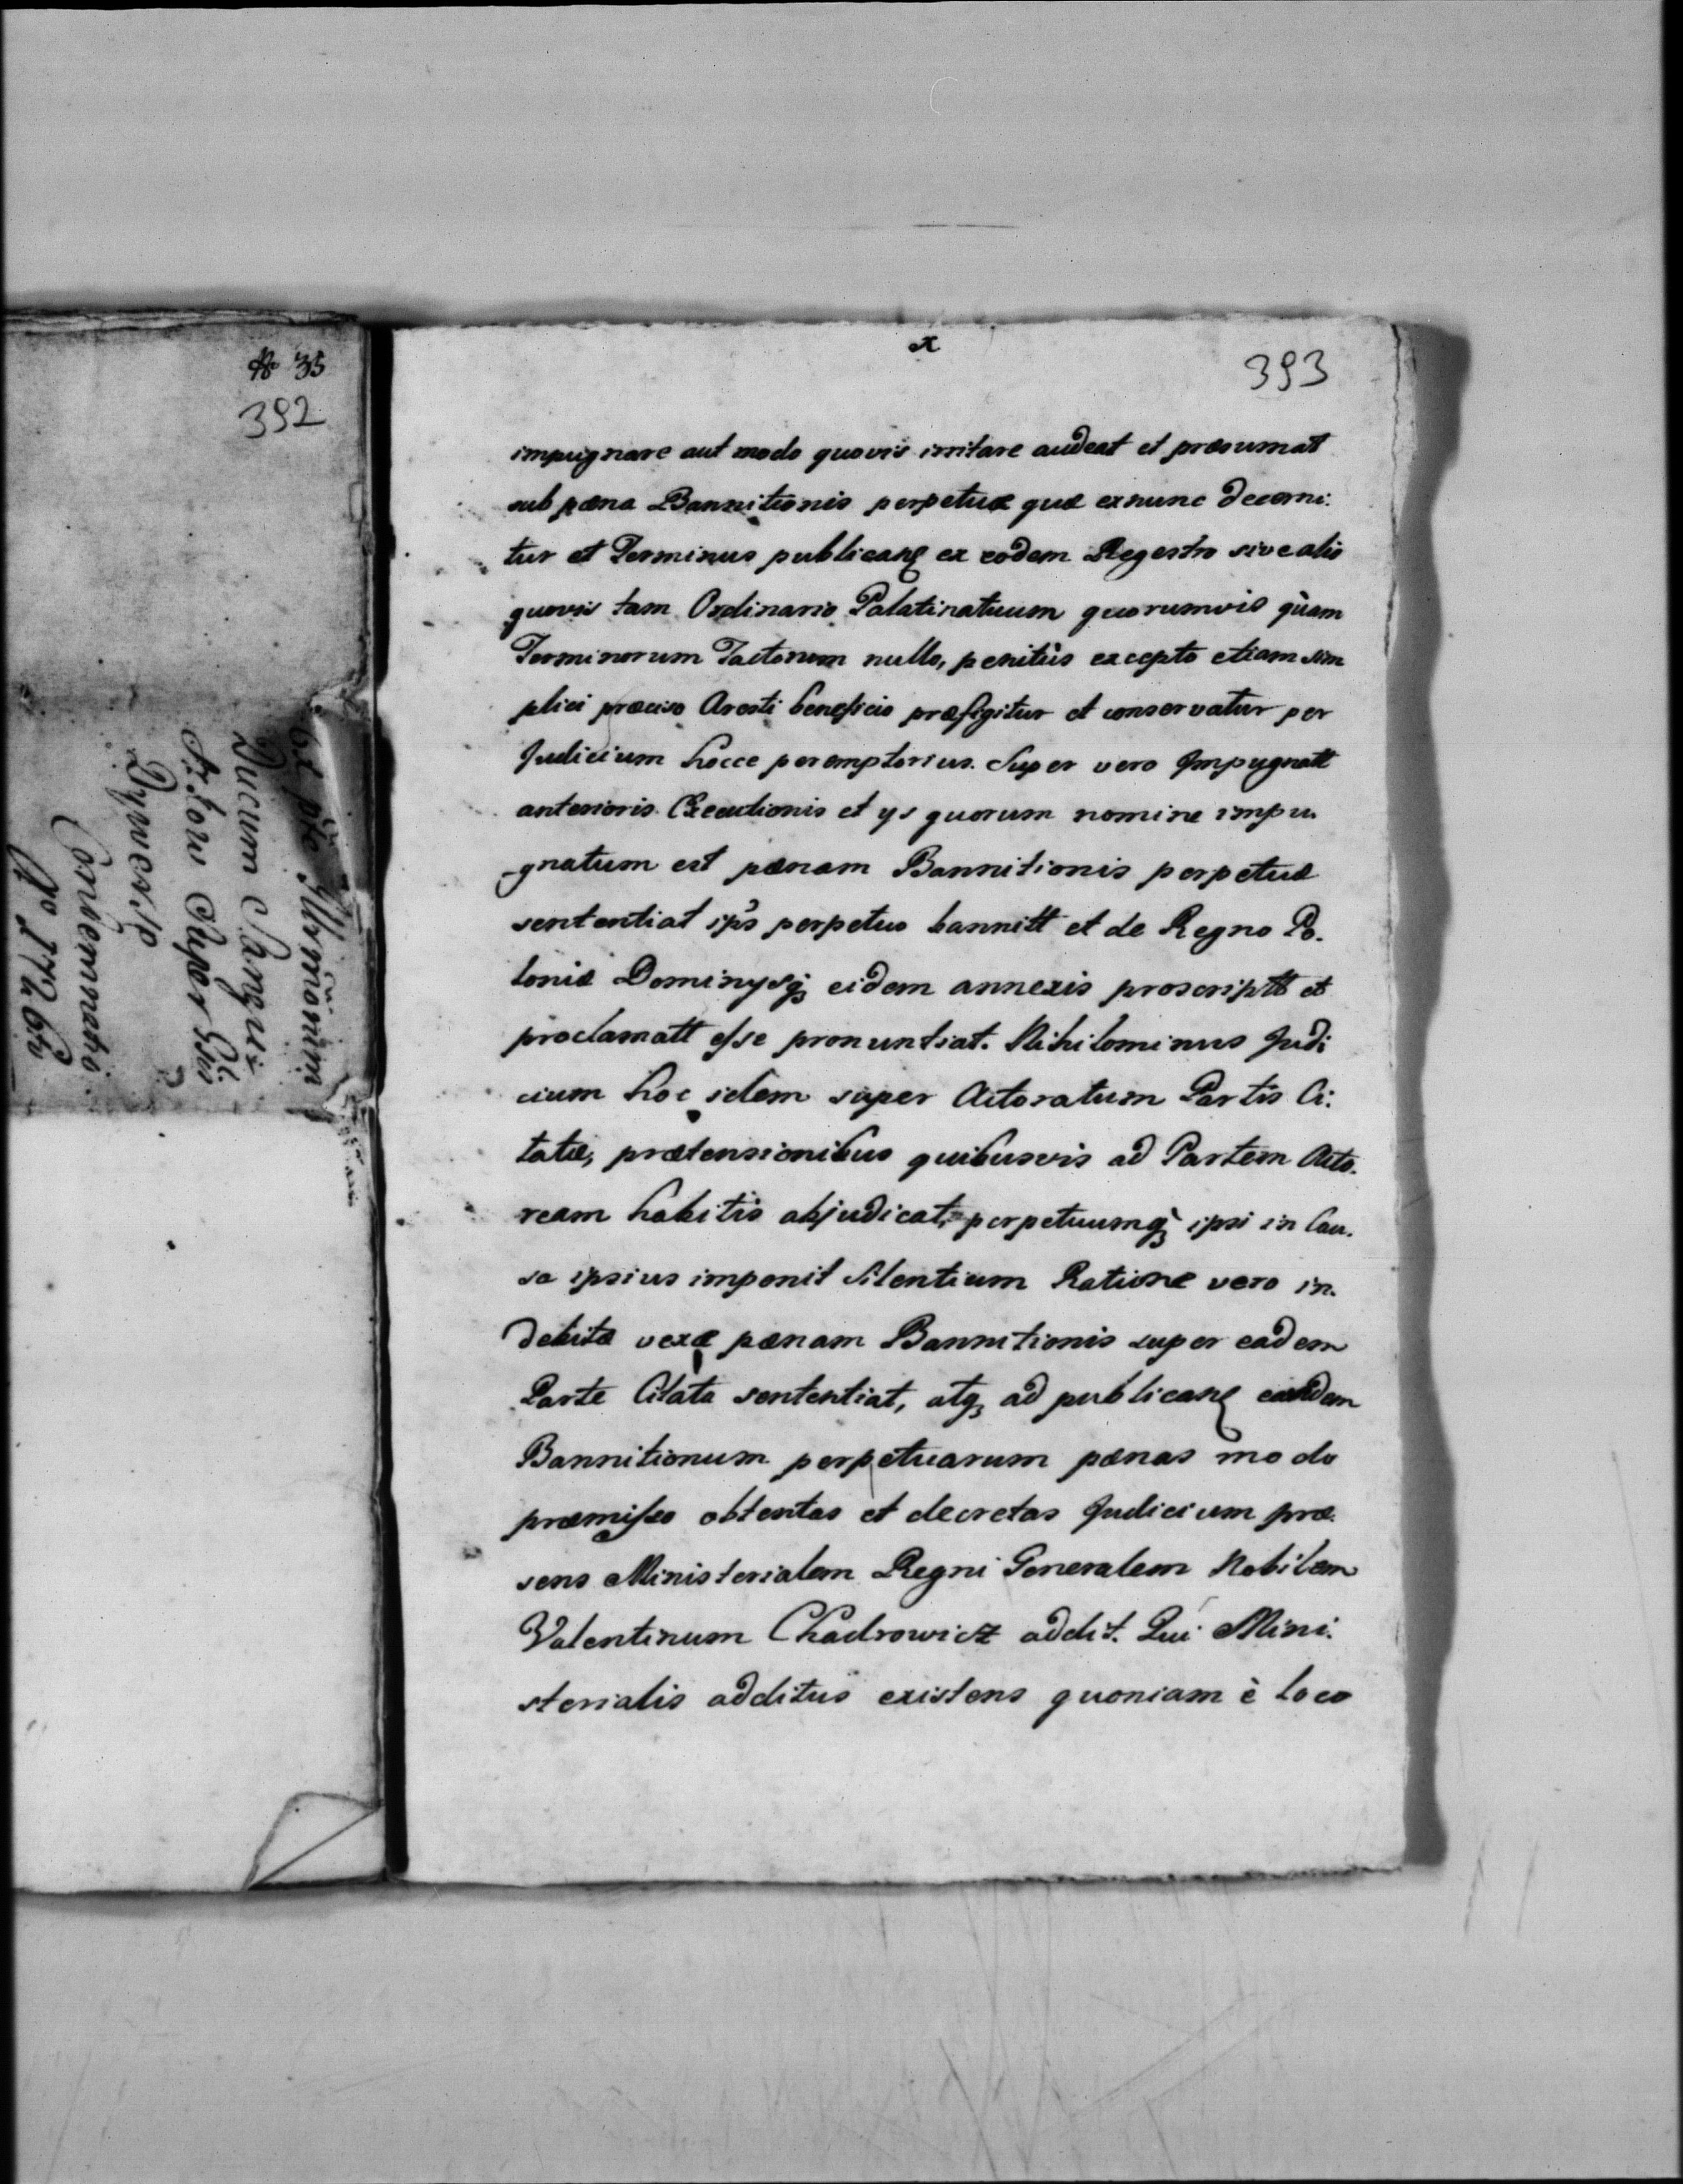 № 35
392
Illrmorum
Ducum Sangus:
Dymess
Condemnatio
Ao 1726to
393
impugnare aut modo quovis irritare audeat et præsumat
sub pæna Bannitionis perpetuæ quæ exnunc decerni:
tur et Terminus publicand ex eodem Regestro sive alio
quovis tam Ordinario Palatinatuum quorumvis quàm
Terminorum Tactorum nullo, penitùs excepto etiam sim
plici præciso Aresti beneficio præfigitur et conservatur per
Judicium hocce peremptorius. Super vero Impugnatt
anterioris Executionis et ys quorum nomine impu.
gnatum est pænam Bannitionis perpetuæ
sententiat ips perpetuo bannitt et de Regno Po.
loniæ Dominysq eidem annexis proscriptt et
proclamatt esse pronuntiat. Nihilominus Judi
cium hoc idem super Actoratum Partis Ci:
tatæ, prætensionibus quibusvis ad Partem Acto.
ream habitis abjudicat, perpetuumq ipsi in Cau.
sa ipsius imponit silentium Ratione vero in.
debitæ vexæ pænam Bannitionis super eadem
Parte Citata sententiat, atq ad publicand easdem
Bannitionum perpetuarum pænas modo
præmisso obtentas et decretas Judicium præ
sens Ministerialem Regni Generalem Nobilem
Valentinum Chadrowicz addit. Qui Mini:
sterialis additus existens quoniam è loco